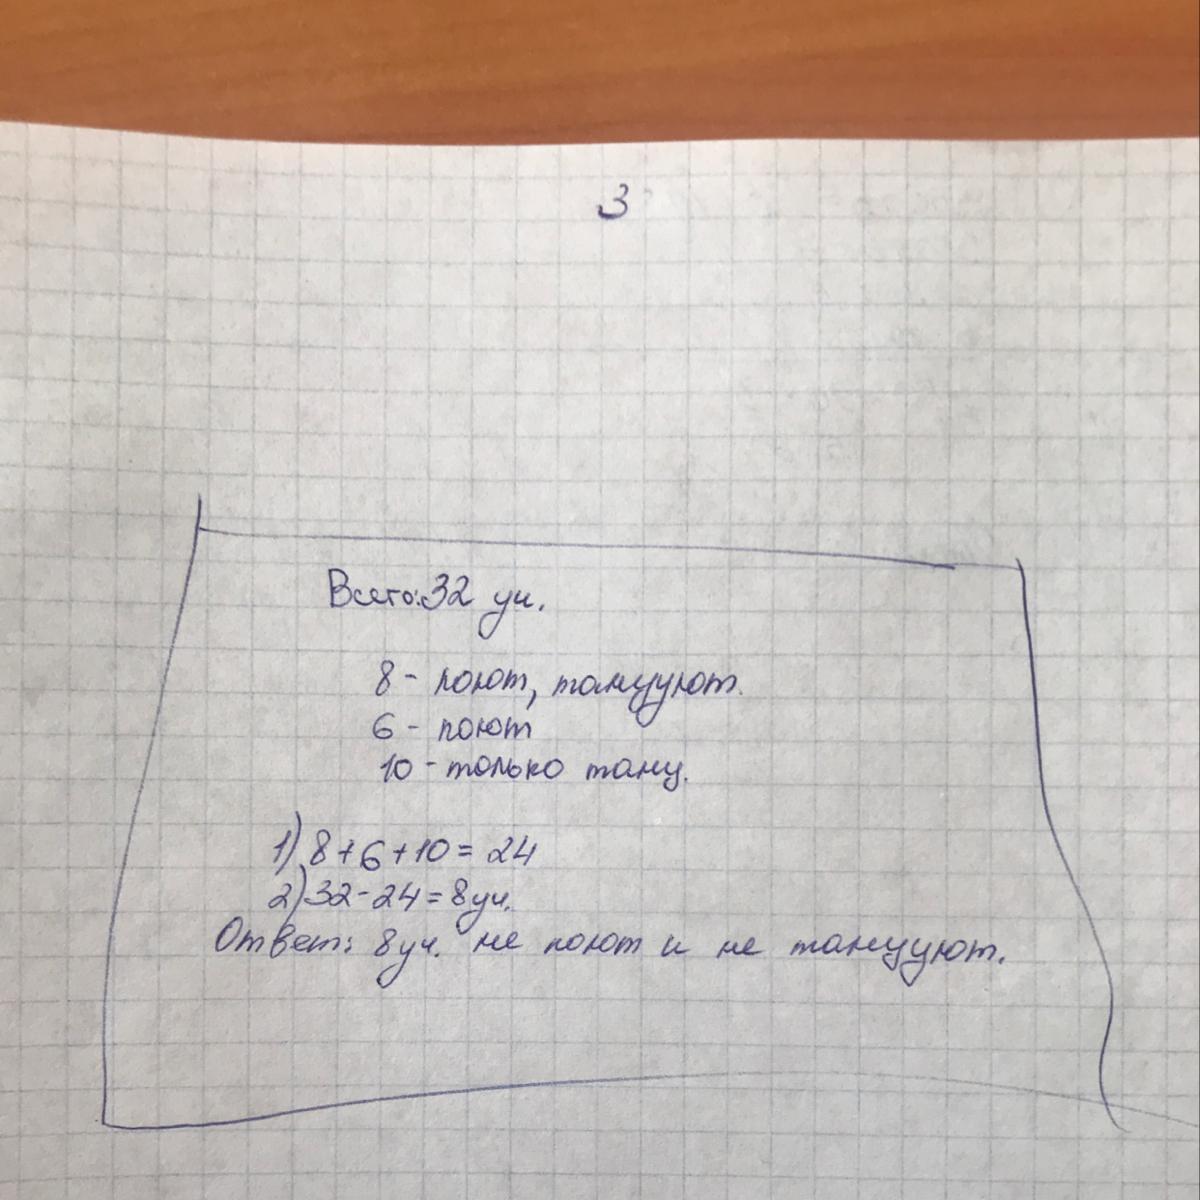 3
Всего: 32 уч.
8 - поют, танцуют.
6 - поют
10 - только танц.
1) 8+6+10 = 24
2) 32-24 = 8 уч.
Ответ: 8 уч. не поют и не танцуют.